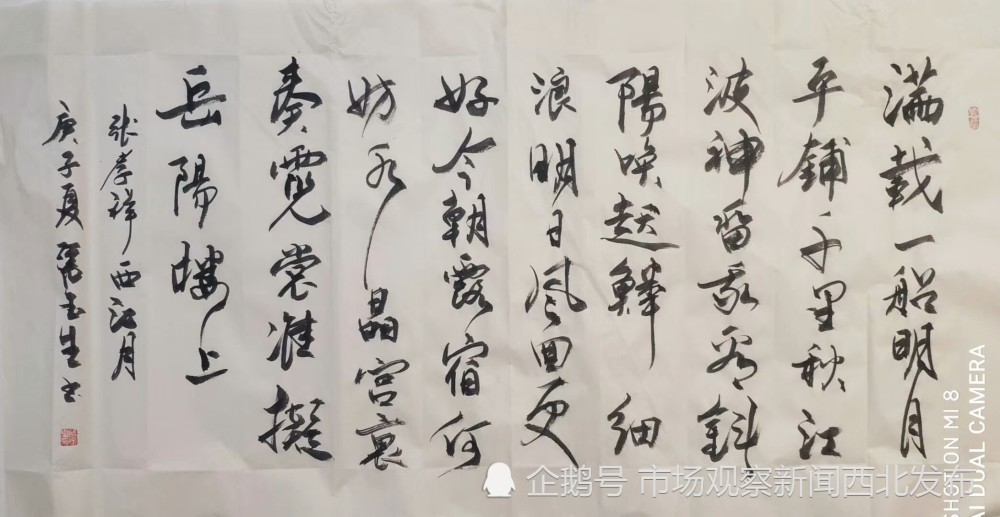 满載一船明月
平鋪千里秋江
波神留我看斜
陽唤起鳞细
浪明日風回更
好今朝露宿何
妨水晶宫裏
奏霓裳准擬
岳陽樓上
张孝祥西江月
庚子夏張玉生书
企鹅号 市场观察新闻西北发布
SHOT ON MI 8
AI DUAL CAMERA